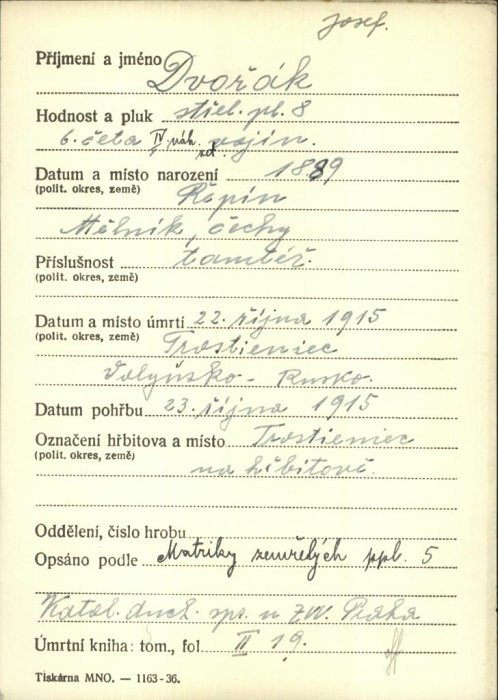 Josef.
Příjmení a jméno Dvořák
Hodnost a pluk střel. pl. 8
6. četa IV. náh. vojín.
Datum a místo narození 1889
(polit. okres, země) Řepín
Mělník, čechy
Příslušnost tamtéž.
(polit. okres, země)
Datum a místo úmrtí 22. října 1915
(polit. okres, země) Trostieniec
Volyňsko - Rusko.
Datum pohřbu 23. října 1915
Označení hřbitova a místo Trostieniec
(polit. okres, země) na hřbitově.
Oddělení, číslo hrobu
Opsáno podle Matriky zemřelých ppl. 5
Katol. duch. spr. u ZVV. Praha
Úmrtní kniha: tom., fol. II 19.
Tiskárna MNO. — 1163-36.